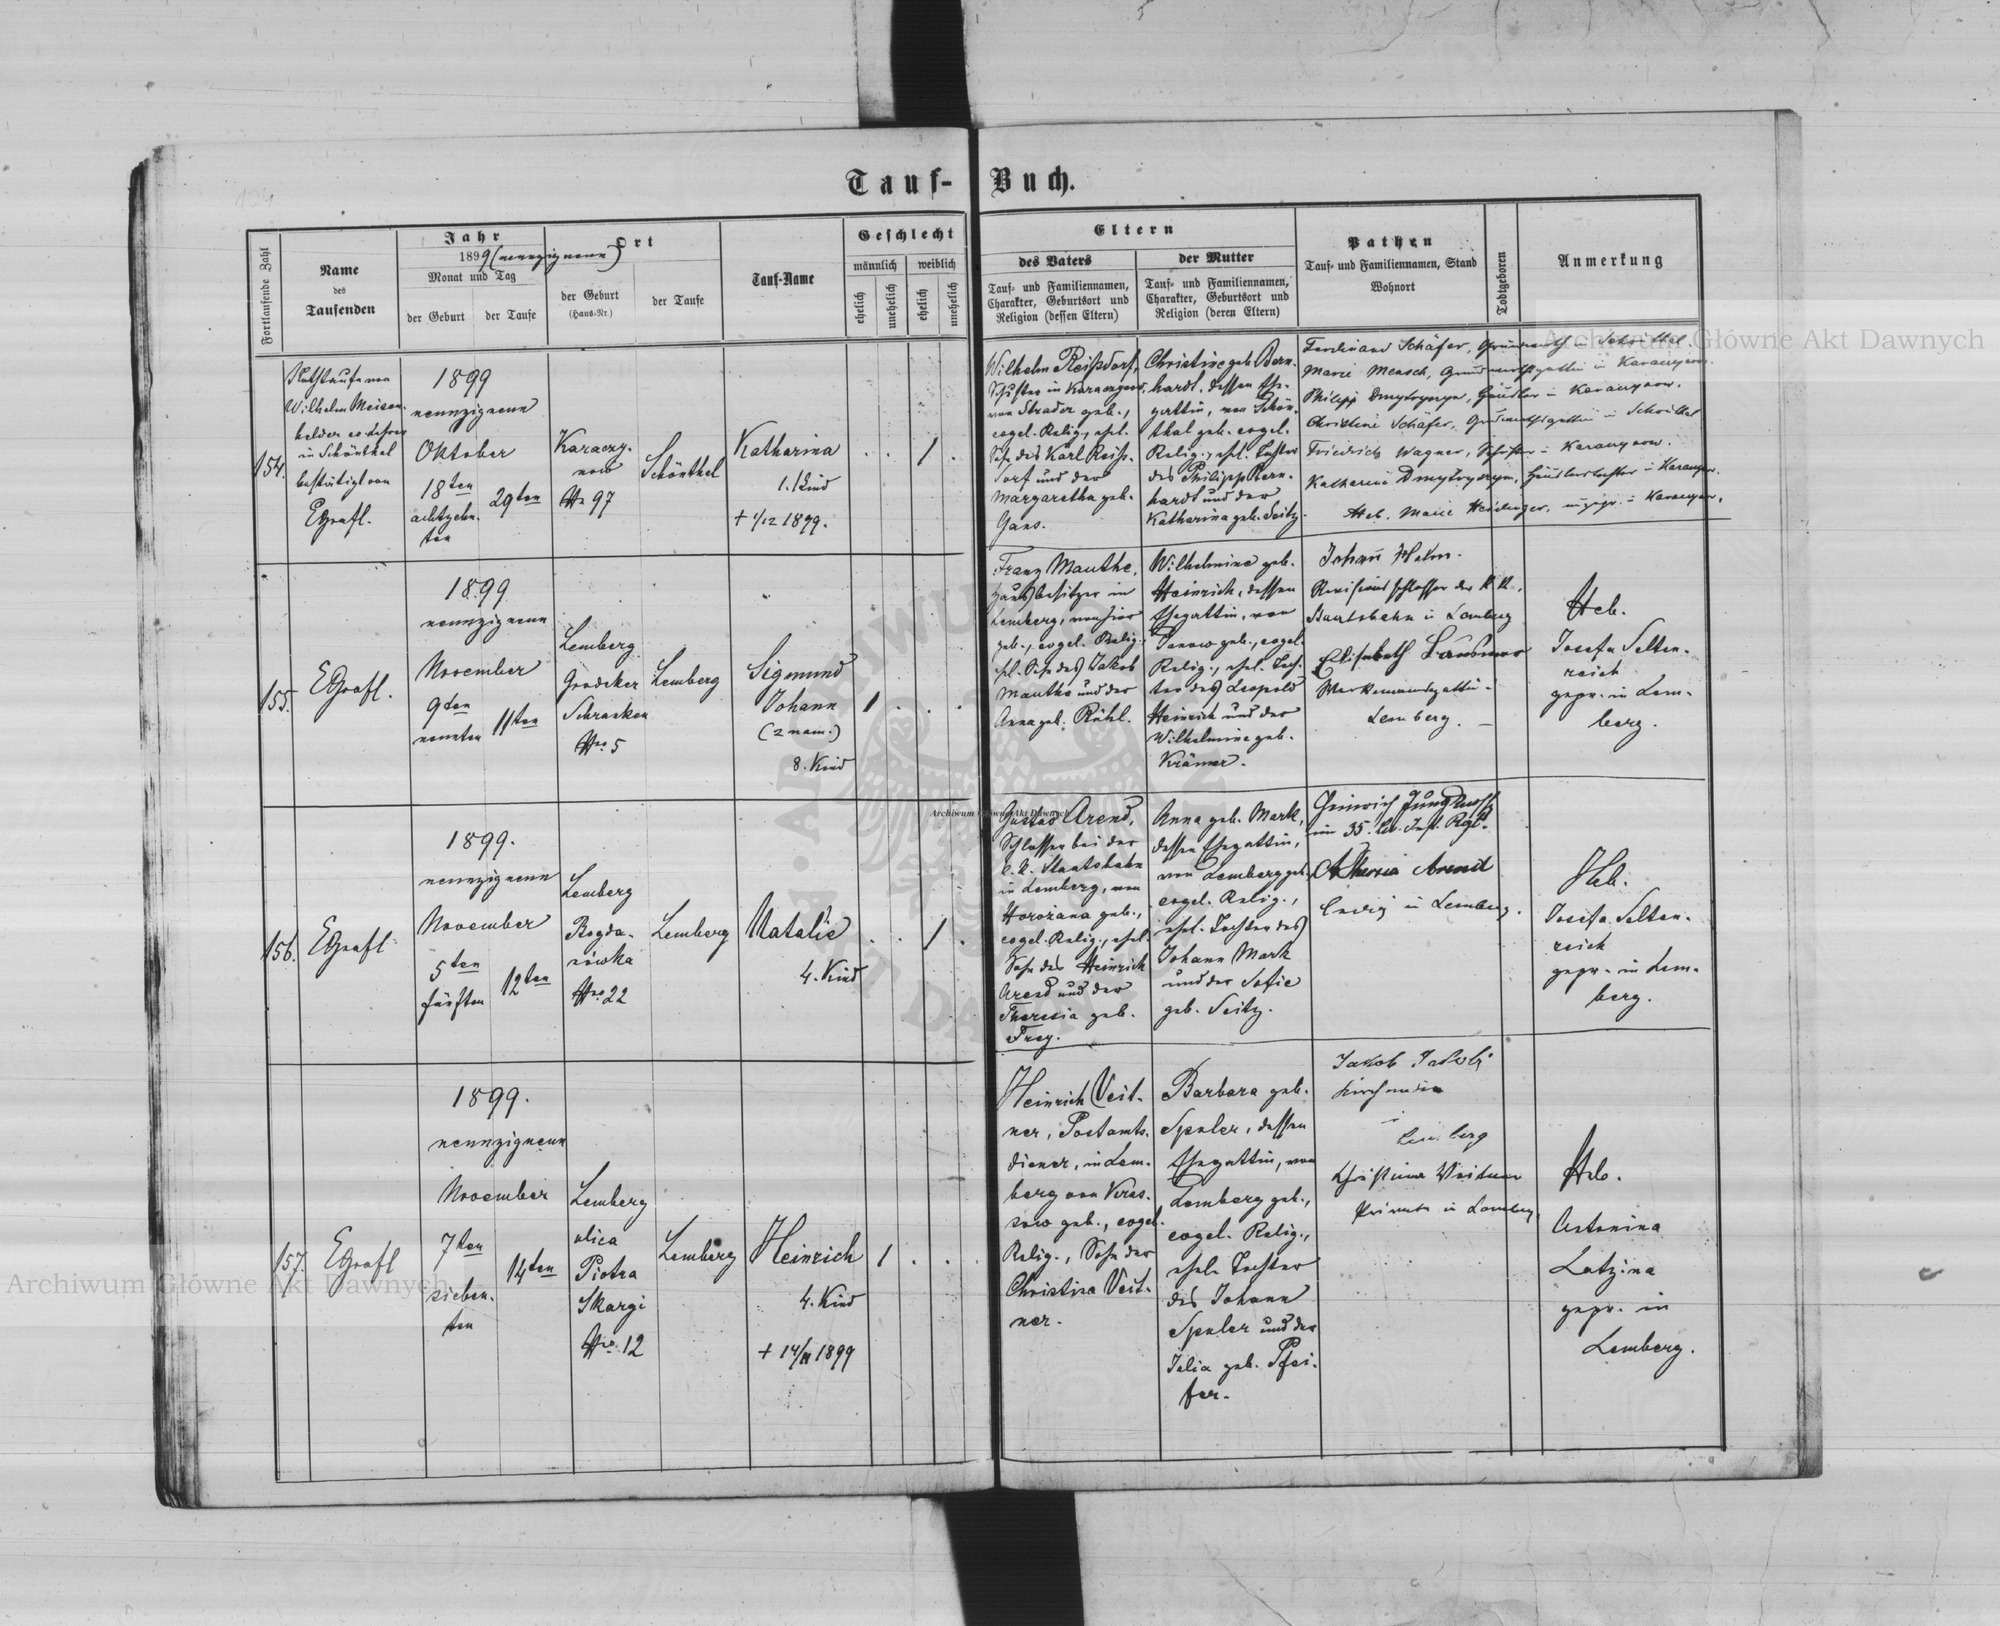 Tauf-Buch.
Fortlaufende Zahl
Name
des
Taufenden
Jahr
1899 (neunzigneun)
Monat und Tag
der Geburt
der Taufe
Ort
der Geburt
(Haus-Nr.)
der Taufe
Tauf-Name
Geschlecht
männlich
weiblich
ehelich
unehelich
ehelich
unehelich
Eltern
des Vaters
Tauf- und Familiennamen,
Charakter, Geburtsort und
Religion (dessen Eltern)
der Mutter
Tauf- und Familiennamen,
Charakter, Geburtsort und
Religion (deren Eltern)
Pathen
Tauf- und Familiennamen, Stand
Wohnort
Todtgeboren
Anmerkung
154.
Nothtaufe von
Wilhelm Meisen-
helder
in Schönthal
bestätigt von
EGrafl.
1899
neunzigneun
Oktober
18ten
achtzehn-
ten
29ten
Karaczy-
now
No 97
Schönthal
Katharina
1. Kind
+ 1/12 1899.
1
Wilhelm Reißdorf,
Schuster in Karaczynow,
von Stradcz geb.,
evgel. Relig., ehel.
Sohn des Karl Reiß-
dorf und der
Margaretha geb.
Gans.
Christine geb. Bern-
hardt, dessen Ehe-
gattin, von Schön-
thal geb. evgel.
Relig., ehel. Tochter
des Philipp Bern-
hardt und der
Katharina geb. Seitz.
Ferdinand Schäfer, Grundwirth - Schönthal
Marie Mensch, Grundwirthsgattin in Karaczynow.
Philipp Dmytryszyn, Häusler in Karaczynow.
Christine Schäfer, Grundwirthsgattin in Schönthal
Friedrich Wagner, Schuster - Karaczynow.
Katharine Dmytryszyn, Häuslerstochter - Karaczyn.
Heb. Marie Heidinger, ungepr. - Karaczyn.
155.
EGrafl.
1899
neunzigneun
November
9ten
neunten
11ten
Lemberg
Grodeker
Schranken
Nro 5
Lemberg
Sigmund
Johann
(2 nam.)
8. Kind
1
Franz Mauthe,
Hausbesitzer in
Lemberg, von hier
geb., evgel. Relig.,
ehl. Sohn des Jakob
Mauthe und der
Anna geb. Rühl.
Wilhelmine geb.
Heinrich, dessen
Ehegattin, von
Janow geb., evgel.
Relig., ehel. Toch-
ter des Leopold
Heinrich und der
Wilhelmine geb.
Krämer.
Johann Helm.
Revisionsschlosser der K.K.
Staatsbahn in Lemberg
Elisabeth
Lemberg.
Heb.
Josefa Selten-
reich
gepr. in Lem-
berg.
156.
EGrafl
1899.
neunzigneun
November
5ten
fünften
12ten
Lemberg
Bogda-
nówka
Nro 22
Lemberg
Natalie
4. Kind
1
Gustav Arend,
Schlosser bei der
k. k. Staatsbahn
in Lemberg, von
Horożana geb.,
evgel. Relig., ehel.
Sohn des Heinrich
Arend und der
Theresia geb.
Frey.
Anna geb. Mark,
dessen Ehegattin,
von Lemberg geb.,
evgel. Relig.,
ehel. Tochter des
Johann Mark
und der Sofie
geb. Seitz.
Heinrich
im 35. Lw. Inf. Rgt.
Theresia Arend
ledig in Lemberg.
Heb.
Josefa Selten-
reich
gepr. in Lem-
berg.
157.
EGrafl
1899.
neunzigneun
November
7ten
sieben-
ten
14ten
Lemberg
ulica
Piotra
Skargi
Nro 12
Lemberg
Heinrich
4. Kind
+ 14/11 1899
1
Heinrich Veit-
ner, Postamts-
diener, in Lem-
berg von Kras-
sow geb., evgel.
Relig., Sohn der
Christina Veit-
ner.
Barbara geb.
Speler, dessen
Ehegattin, von
Lemberg geb.,
evgel. Relig.,
ehel. Tochter
des Johann
Speler und der
Julia geb. Pfei-
fer.
Jakob Jakobi
Kirchendiener
in
Lemberg
Christina Veitner
Private in Lemberg
Heb.
Antonina
Latzina
gepr. in
Lemberg.
Archiwum Główne Akt Dawnych
Archiwum Główne Akt Dawnych
Archiwum Główne Akt Dawnych